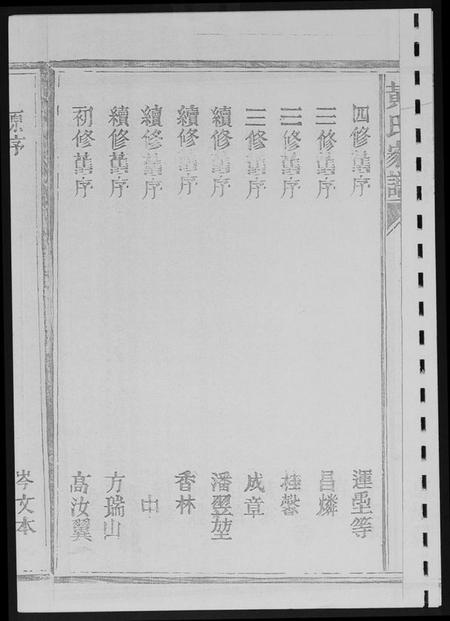 黃氏家譜
四修舊序 運垔等
三修舊序 昌燐
三修舊序 桂馨
三修舊序 成章
續修舊序 潘翌堃
續修舊序 香林
續修舊序 中
續修舊序 方瑞山
初修舊序 高汝翼
原序 岑文本